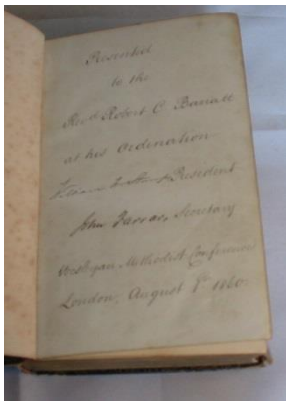 Presented
to the
Revd. Robert C. Barratt
at his Ordination
President
John Farrar, Secretary
Wesleyan Methodist Conference
London, August 1st 1860.